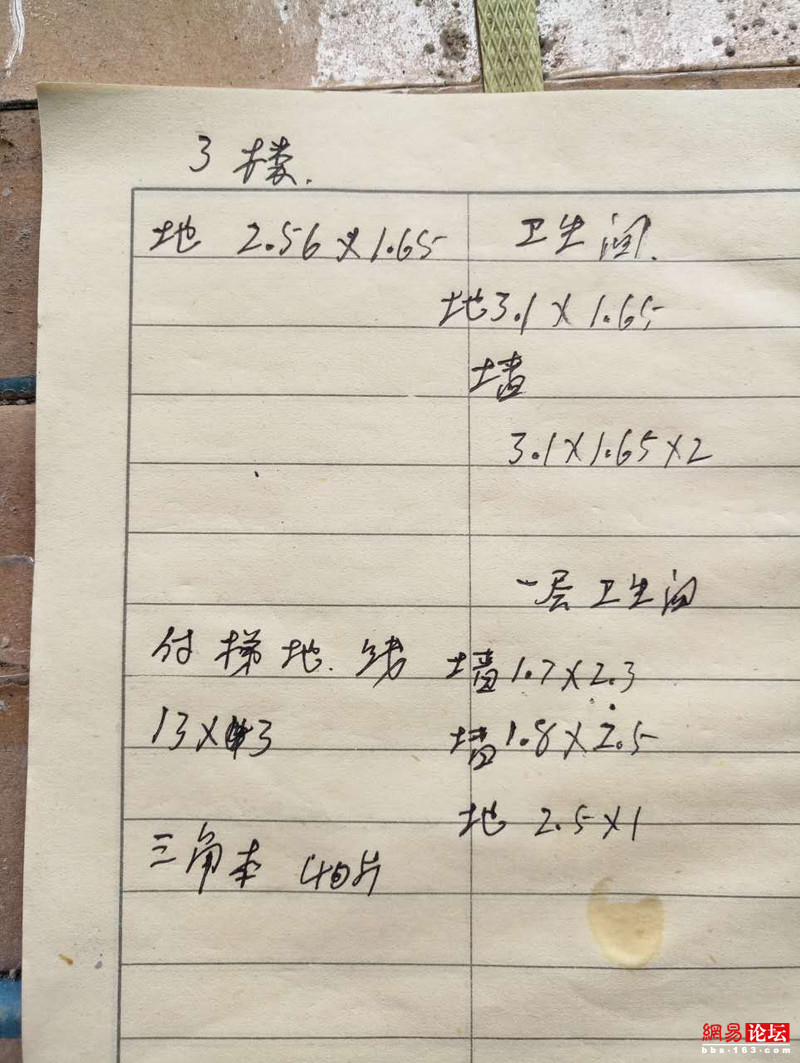 3 楼.
地 2.56×1.65
付梯地.线
13×3
三角本 40片
卫生间.
地3.1×1.65
墙
3.1×1.65×2
一层卫生间
墙1.7×2.3
墙1.8×2.5
地 2.5×1
網易论坛
bbs.163.com